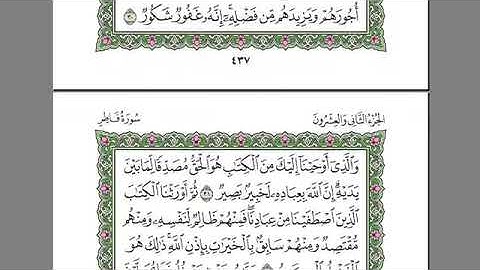 أُجُورَهُمْ وَيَزِيدَهُم مِّن فَضْلِهِۦٓ إِنَّهُۥ غَفُورٌ شَكُورٌ ٣٠
٤٣٧
الجزء الثاني والعشرون سورة فاطر
وَٱلَّذِىٓ أَوْحَيْنَآ إِلَيْكَ مِنَ ٱلْكِتَٰبِ هُوَ ٱلْحَقُّ مُصَدِّقًا لِّمَا بَيْنَ
يَدَيْهِ إِنَّ ٱللَّهَ بِعِبَادِهِۦ لَخَبِيرٌۢ بَصِيرٌ ٣١ ثُمَّ أَوْرَثْنَا ٱلْكِتَٰبَ
ٱلَّذِينَ ٱصْطَفَيْنَا مِنْ عِبَادِنَا فَمِنْهُمْ ظَالِمٌ لِّنَفْسِهِۦ وَمِنْهُم
مُّقْتَصِدٌ وَمِنْهُمْ سَابِقٌۢ بِٱلْخَيْرَٰتِ بِإِذْنِ ٱللَّهِ ذَٰلِكَ هُوَ